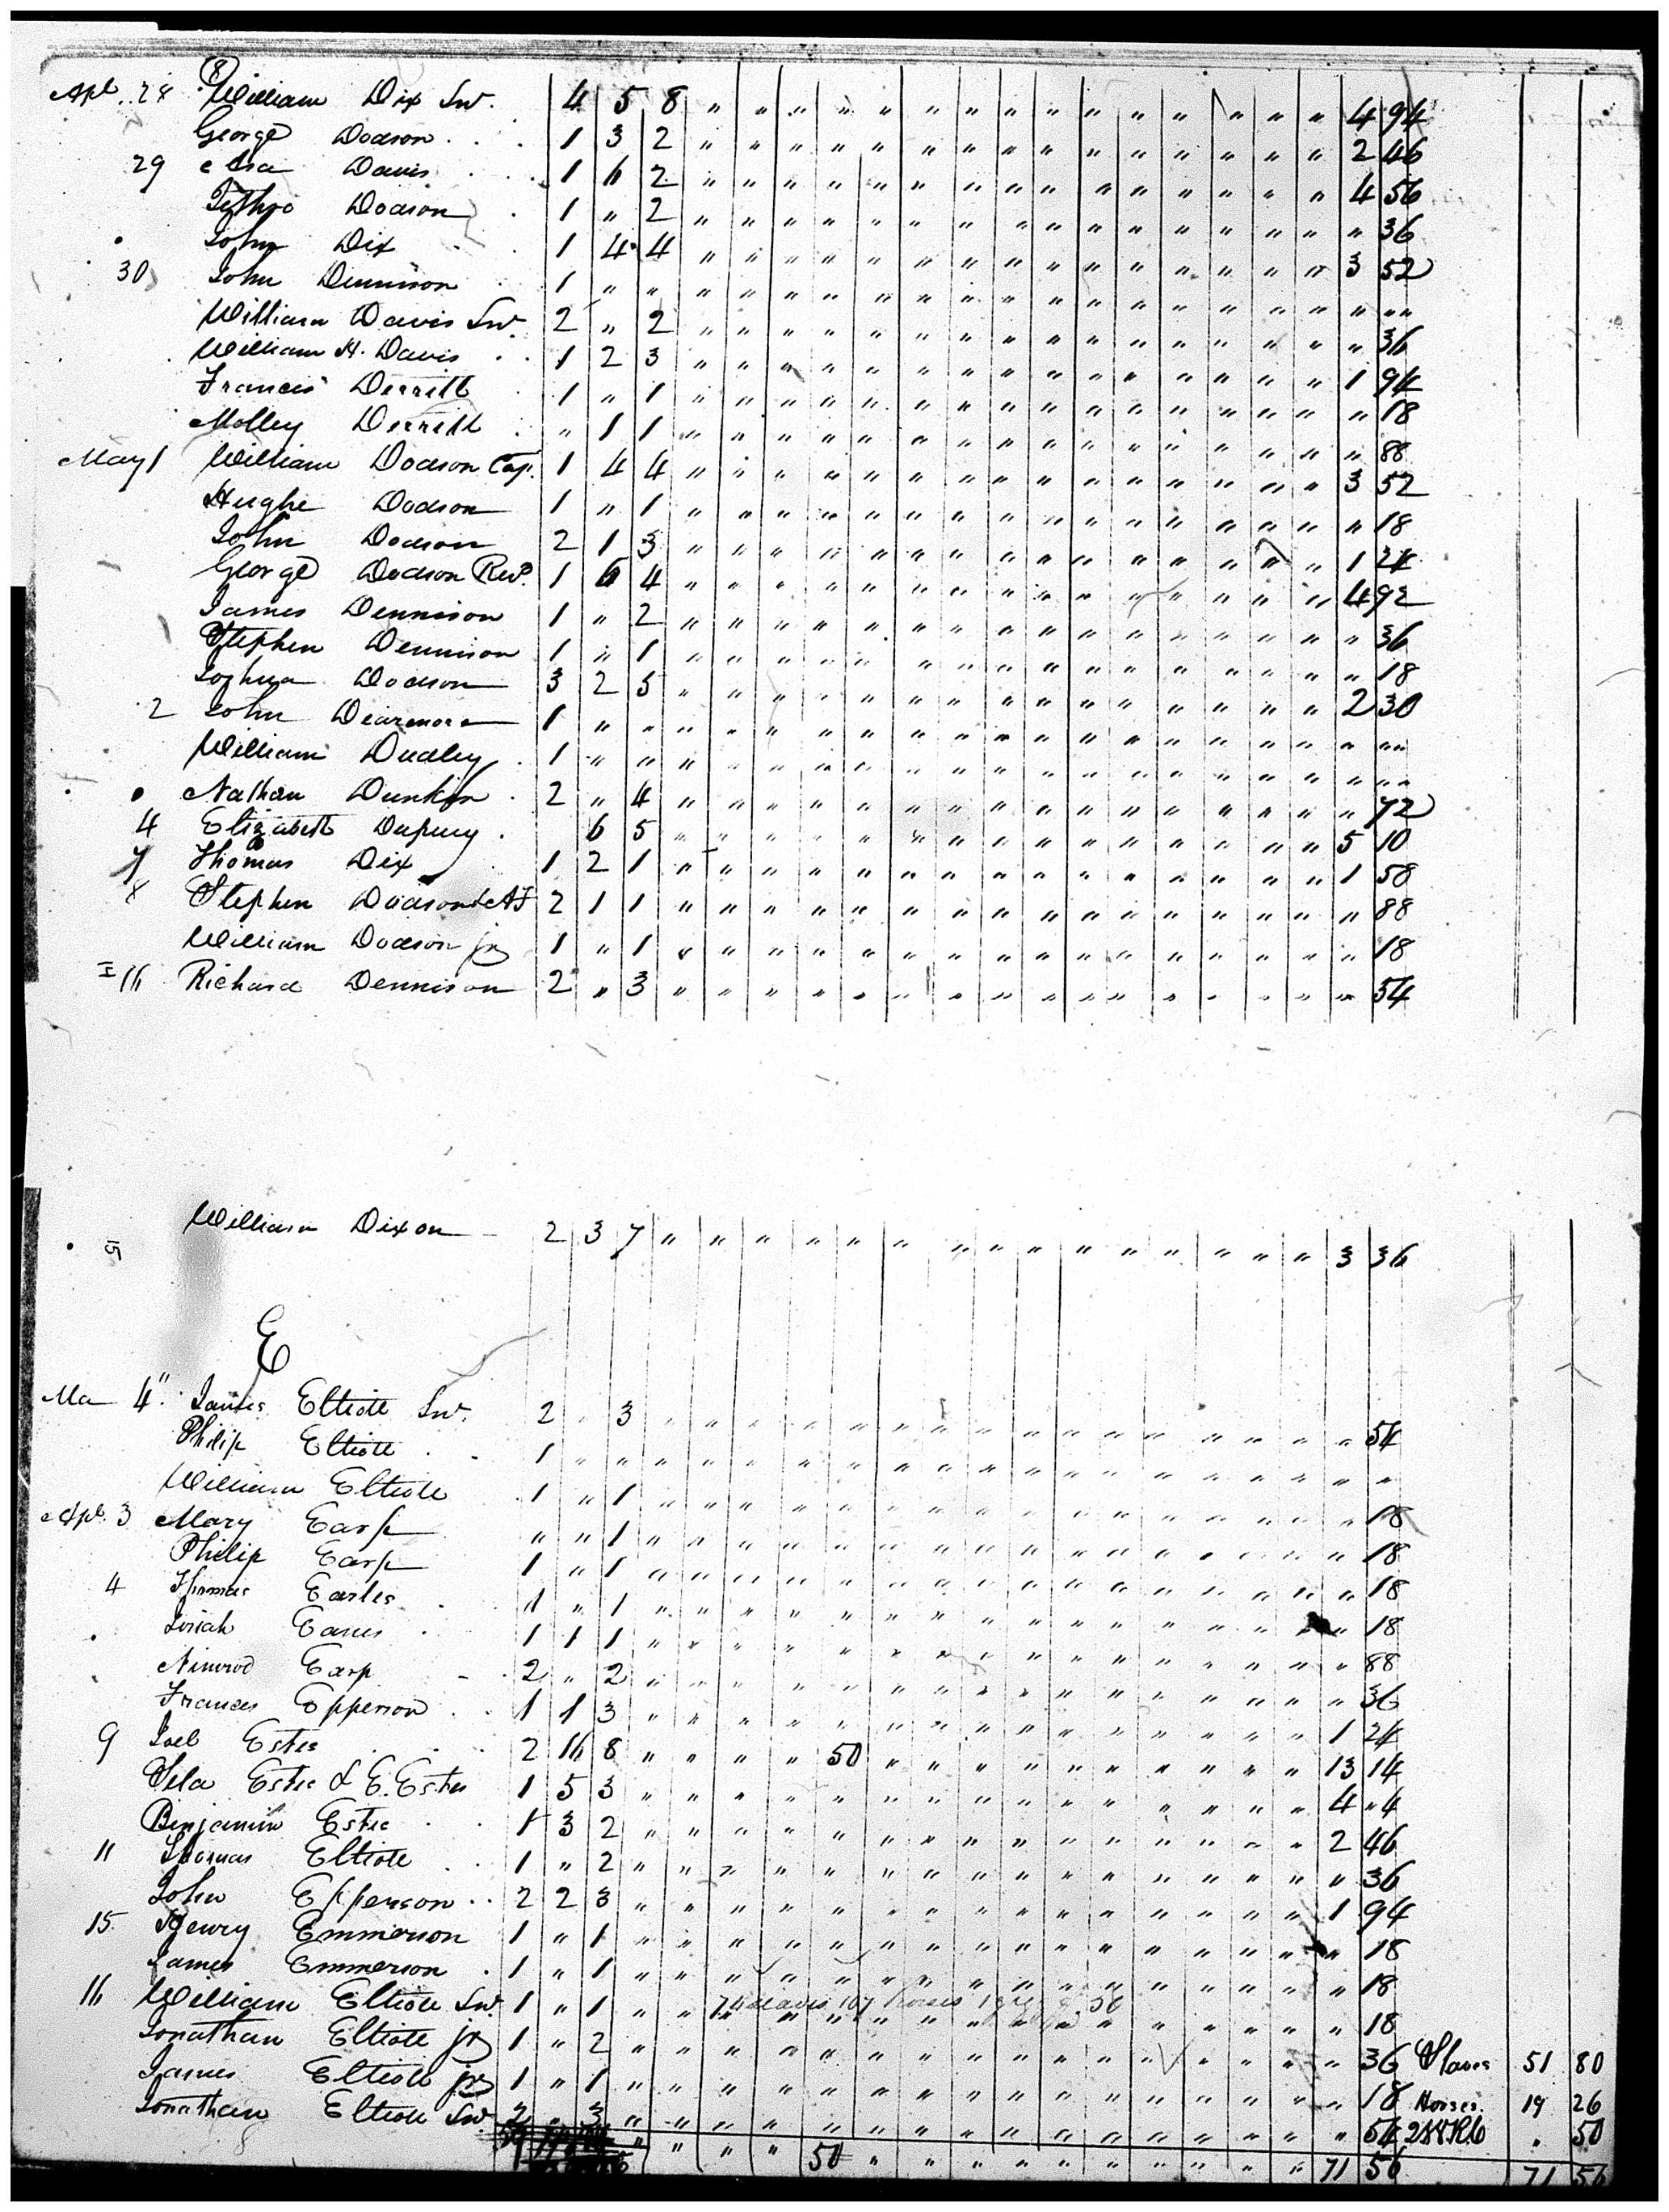 Apl. 28 William Dix Snr. 4 5 8 " " " " " " " " " " " " " " " 4 94
George Dodson 1 3 2 " " " " " " " " " " " " " " " 2 46
29 Asa Davis 1 6 2 " " " " " " " " " " " " " " " 4 56
Jethro Dodson 1 " 2 " " " " " " " " " " " " " " " " 36
John Dix 1 4 4 " " " " " " " " " " " " " " " 3 52
30 John Dennison 1 " " " " " " " " " " " " " " " " " " " "
William Davis Snr 2 " 2 " " " " " " " " " " " " " " " " 36
William H. Davis 1 2 3 " " " " " " " " " " " " " " " 1 94
Francis Derrill 1 " 1 " " " " " " " " " " " " " " " " 18
Molley Derrill " 1 1 " " " " " " " " " " " " " " " " 88
May 1 William Dodson Cap. 1 4 4 " " " " " " " " " " " " " " " 3 52
Hughe Dodson 1 " 1 " " " " " " " " " " " " " " " " 18
John Dodson 2 1 3 " " " " " " " " " " " " " " " 1 24
George Dodson Revd. 1 6 4 " " " " " " " " " " " " " " " 4 92
James Dennison 1 " 2 " " " " " " " " " " " " " " " " 36
Stephen Dennison 1 " 1 " " " " " " " " " " " " " " " " 18
Joshua Dodson 3 2 5 " " " " " " " " " " " " " " " 2 30
2 John Dearmore 1 " " " " " " " " " " " " " " " " " " " "
William Dudley 1 " " " " " " " " " " " " " " " " " " " "
Nathan Dunkin 2 " 4 " " " " " " " " " " " " " " " " 72
4 Elizabeth Dupuey 6 5 " " " " " " " " " " " " " " " 5 10
7 Thomas Dix 1 2 1 " " " " " " " " " " " " " " " 1 58
8 Stephen Dodson 2 1 1 " " " " " " " " " " " " " " " " 88
William Dodson jr 1 " 1 " " " " " " " " " " " " " " " " 18
16 Richard Dennison 2 " 3 " " " " " " " " " " " " " " " " 54
15 William Dixon 2 3 7 " " " " " " " " " " " " " " " 3 36
E
Ma 4" James Elliott Snr. 2 " 3 " " " " " " " " " " " " " " " " 54
Philip Elliott 1 " " " " " " " " " " " " " " " " " " "
William Elliott 1 " 1 " " " " " " " " " " " " " " " " 18
Apl. 3 Mary Earp " " 1 " " " " " " " " " " " " " " " " 18
Philip Earp 1 " 1 " " " " " " " " " " " " " " " " 18
4 Thomas Earles 1 " 1 " " " " " " " " " " " " " " " " 18
Josiah Eanes 1 1 1 " " " " " " " " " " " " " " " " 88
Nimrod Earp 2 " 2 " " " " " " " " " " " " " " " " 36
Frances Epperson 1 1 3 " " " " " " " " " " " " " " " 1 24
9 Joel Estes 2 16 8 " " " " 50 " " " " " " " " " " 13 14
Sila Estes & E. Estes 1 5 3 " " " " " " " " " " " " " " " 4 "4
Binjamin Estes 1 3 2 " " " " " " " " " " " " " " " 2 46
11 Thomas Elliott 1 " 2 " " " " " " " " " " " " " " " " 36
John Epperson 2 2 3 " " " " " " " " " " " " " " " 1 94
15 Henry Emmerson 1 " 1 " " " " " " " " " " " " " " " " 18
James Emmerson 1 " 1 " " " " " " " " " " " " " " " " 18
16 William Elliott Snr 1 " 1 " " " " " " " " " " " " " " " " 18
Jonathan Elliott jr 1 " 2 " " " " " " " " " " " " " " " " 36 Slaves 51 80
James Elliott jr 1 " 1 " " " " " " " " " " " " " " " " 18 Horses 19 26
Jonathan Elliott Snr 2 " 3 " " " " " " " " " " " " " " " " 54 " 50
59 " " " " 50 " " " " " " " " " " 71 56 71 56